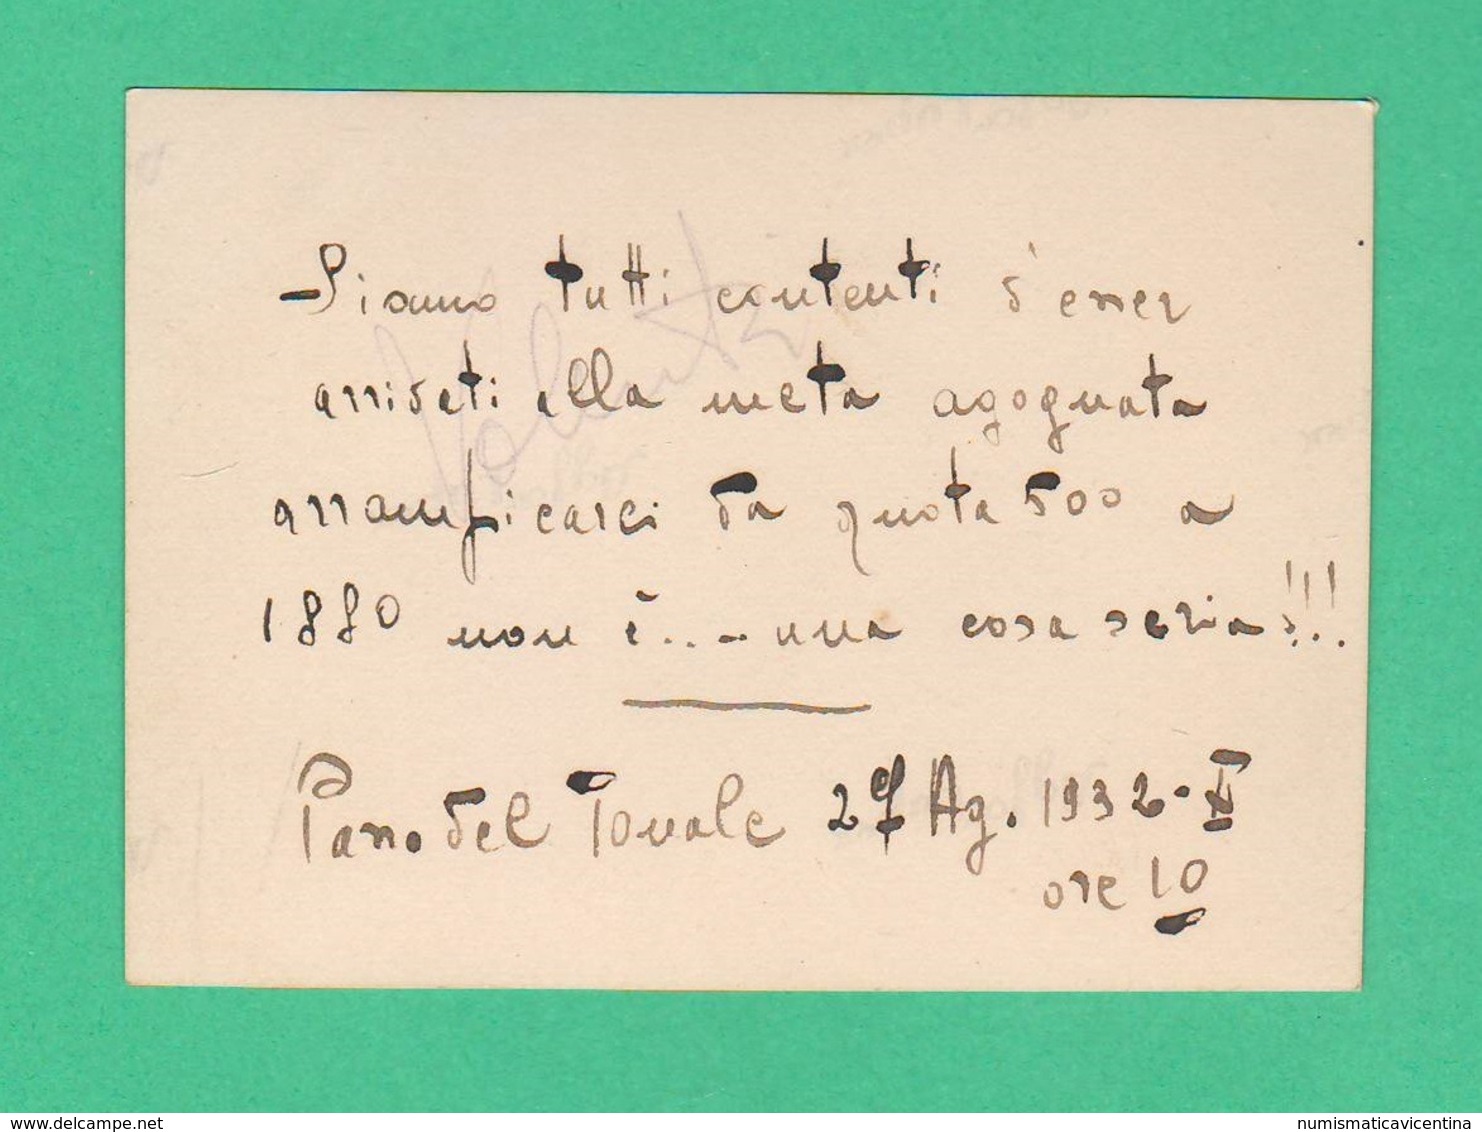 - Siamo tutti contenti d'esser
arrivati alla meta agognata
arrampicarci da quota 500 a
1880 non è..- una cosa seria!!!
Passo del Tonale 27 Ag. 1932-X
ore 10
www.delcampe.net
numismaticavicentina